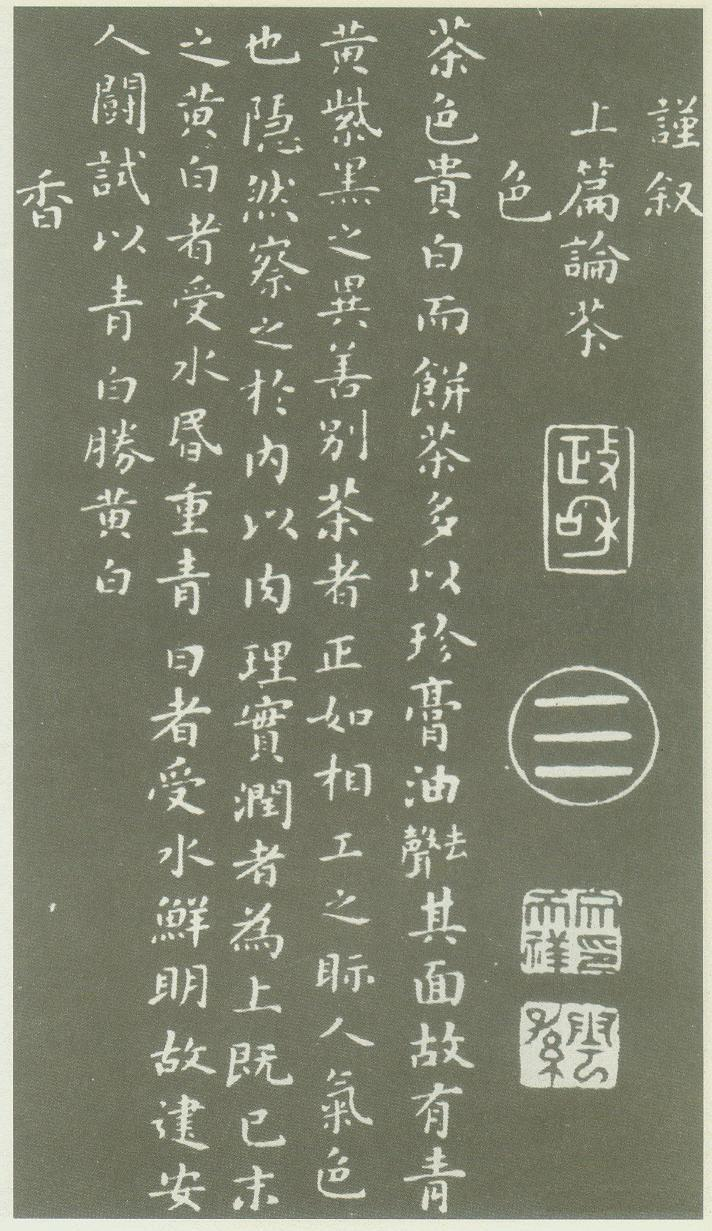 謹叙
上篇論茶
政和
☰
色
茶色貴白而餅茶多以珍膏油去聲其面故有青
黃紫黑之異善別茶者正如相工之眎人氣色
也隱然察之於內以肉理實潤者為上既已末
之黃白者受水昬重青白者受水鮮明故建安
人鬪試以青白勝黃白
香